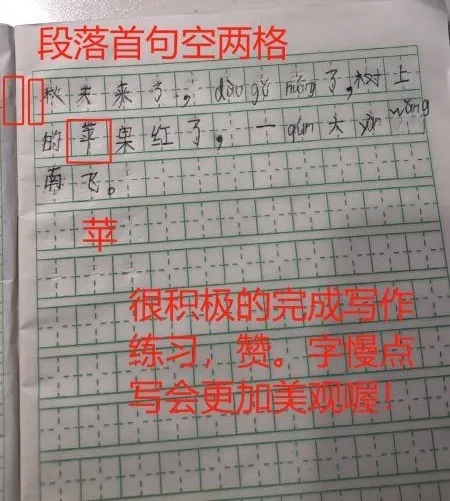 段落首句空两格
秋天来了，dào gǔ 了，树上
的苹果红了。一 qún 大 yàn wǎng
南飞。
苹
很积极的完成写作
练习，赞。字慢点
写会更加美观喔！